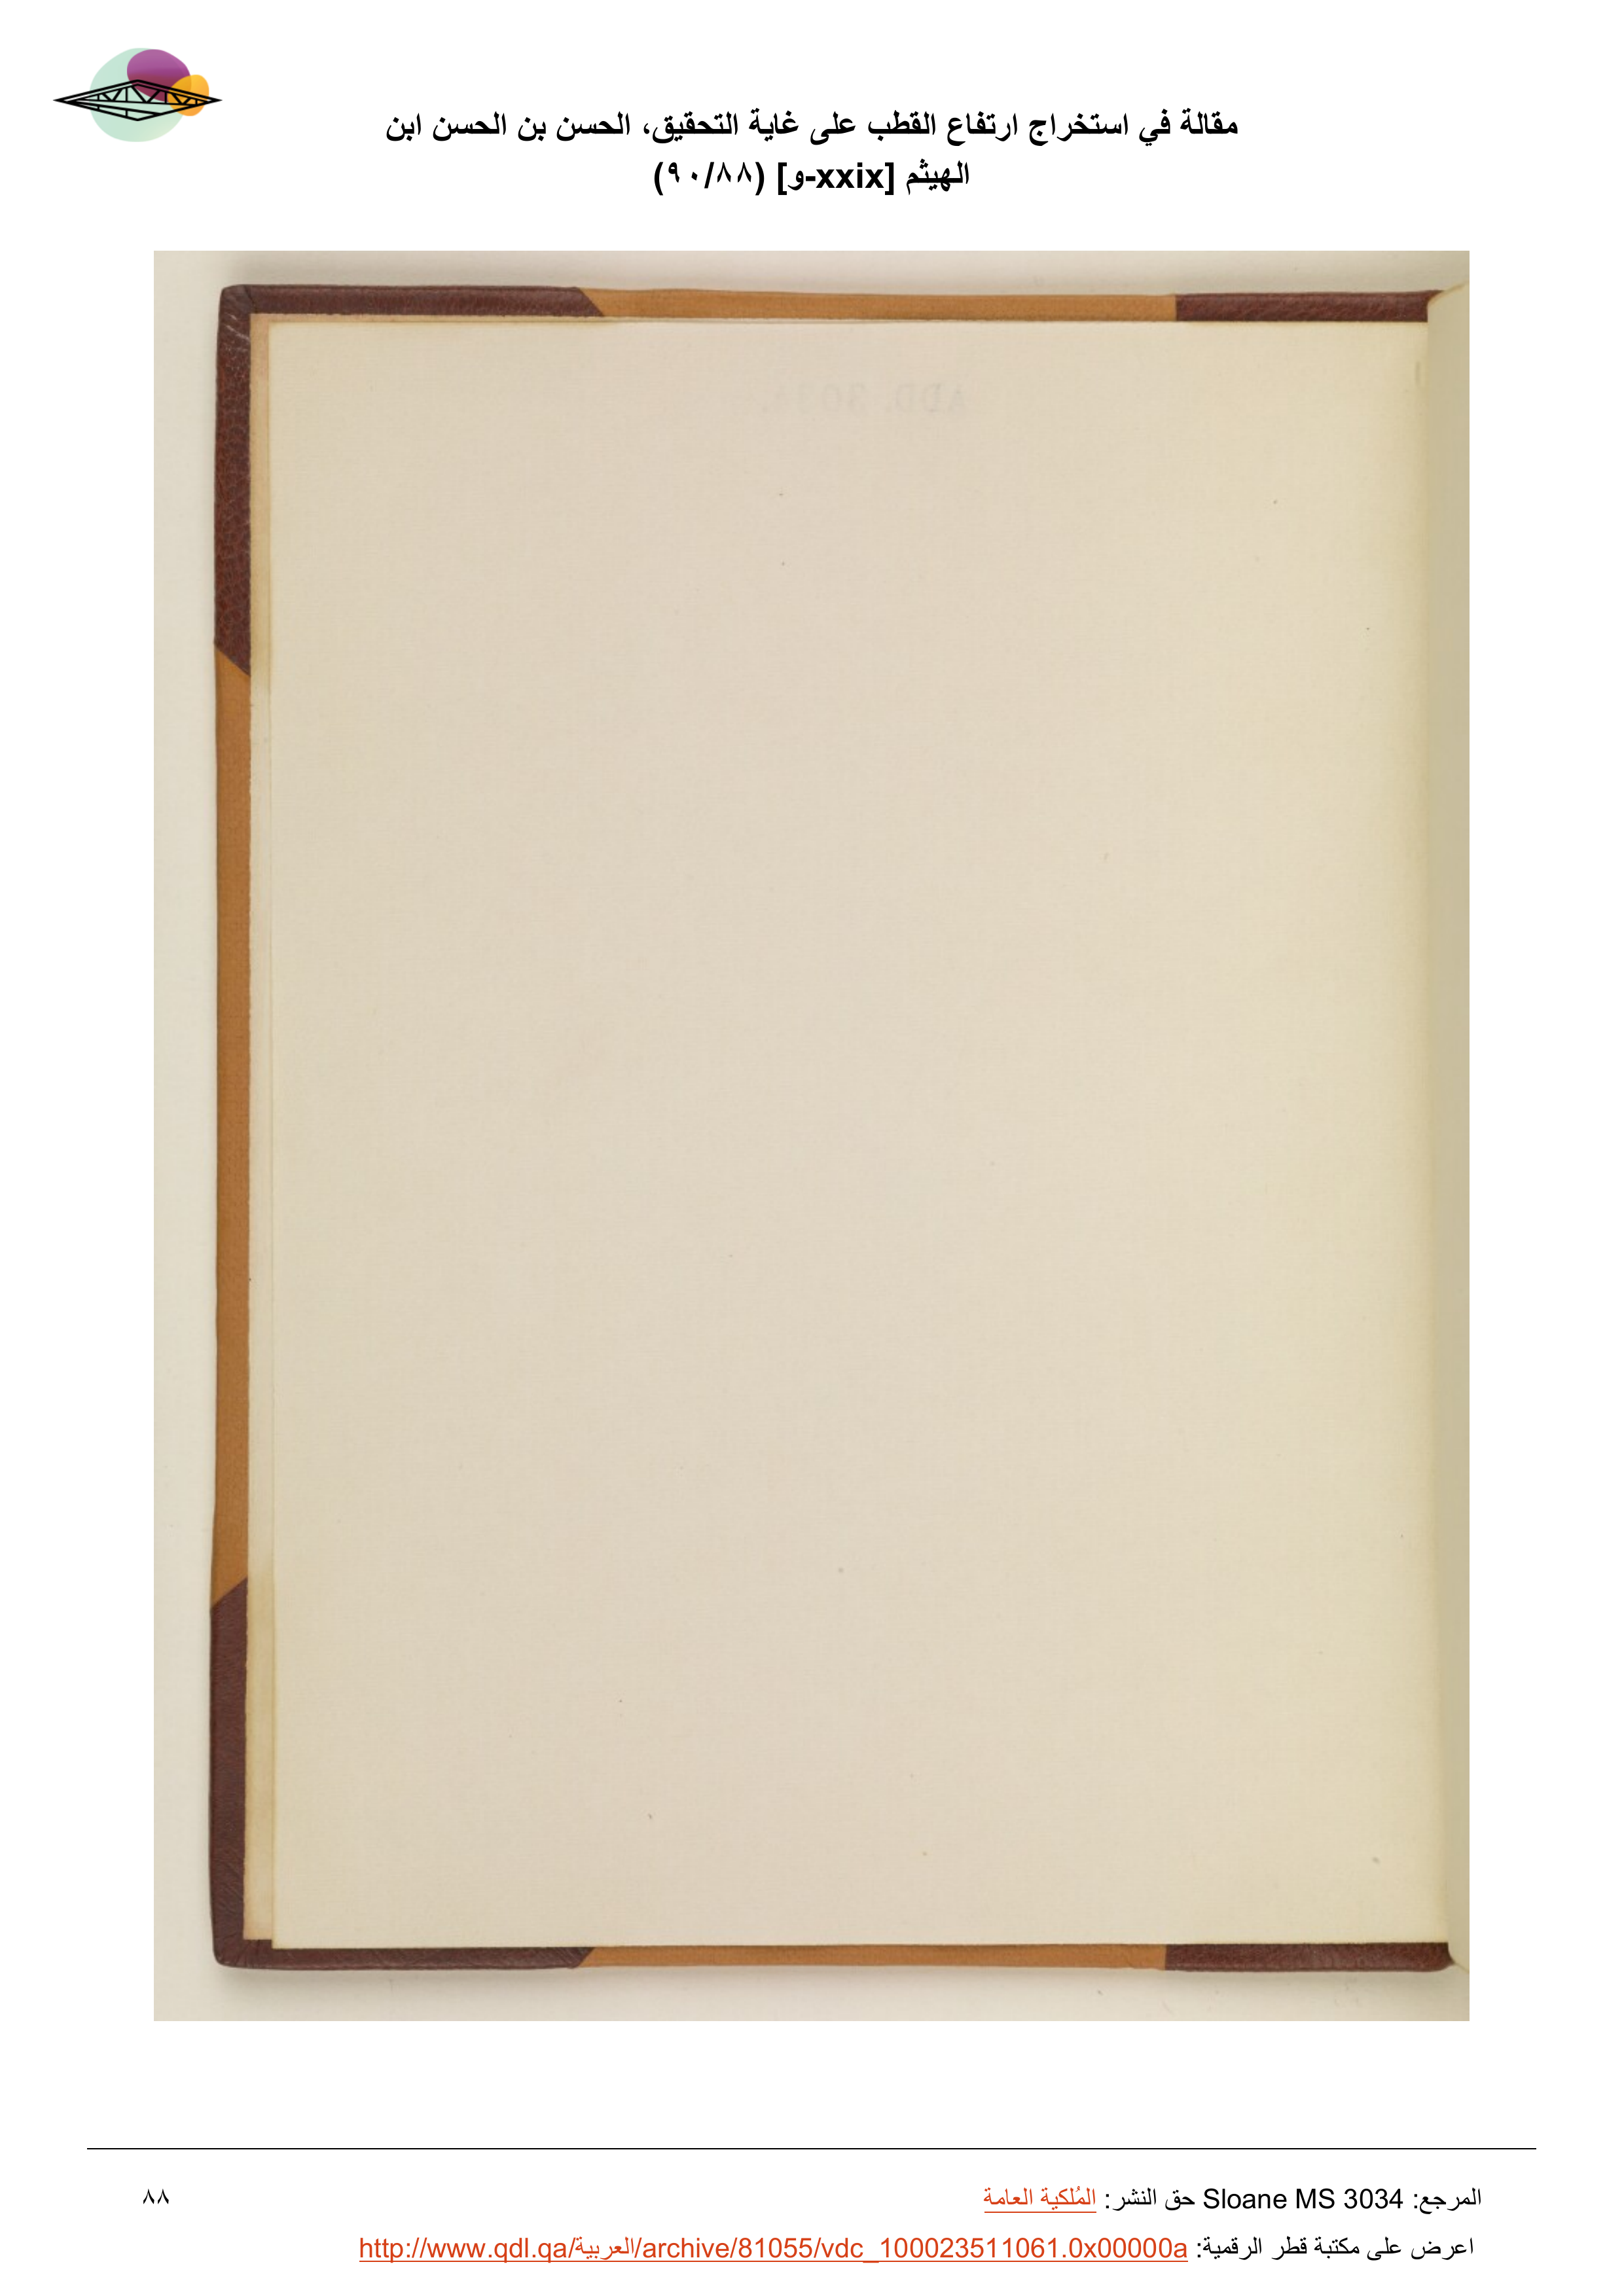 مقالة في استخراج ارتفاع القطب على غاية التحقيق، الحسن بن الحسن ابن
الهيثم [xxix-و] (٩٠/٨٨)
ADD. 3034.
المرجع: Sloane MS 3034 حق النشر: المُلكية العامة
٨٨
اعرض على مكتبة قطر الرقمية: http://www.qdl.qa/العربية/archive/81055/vdc_100023511061.0x00000a